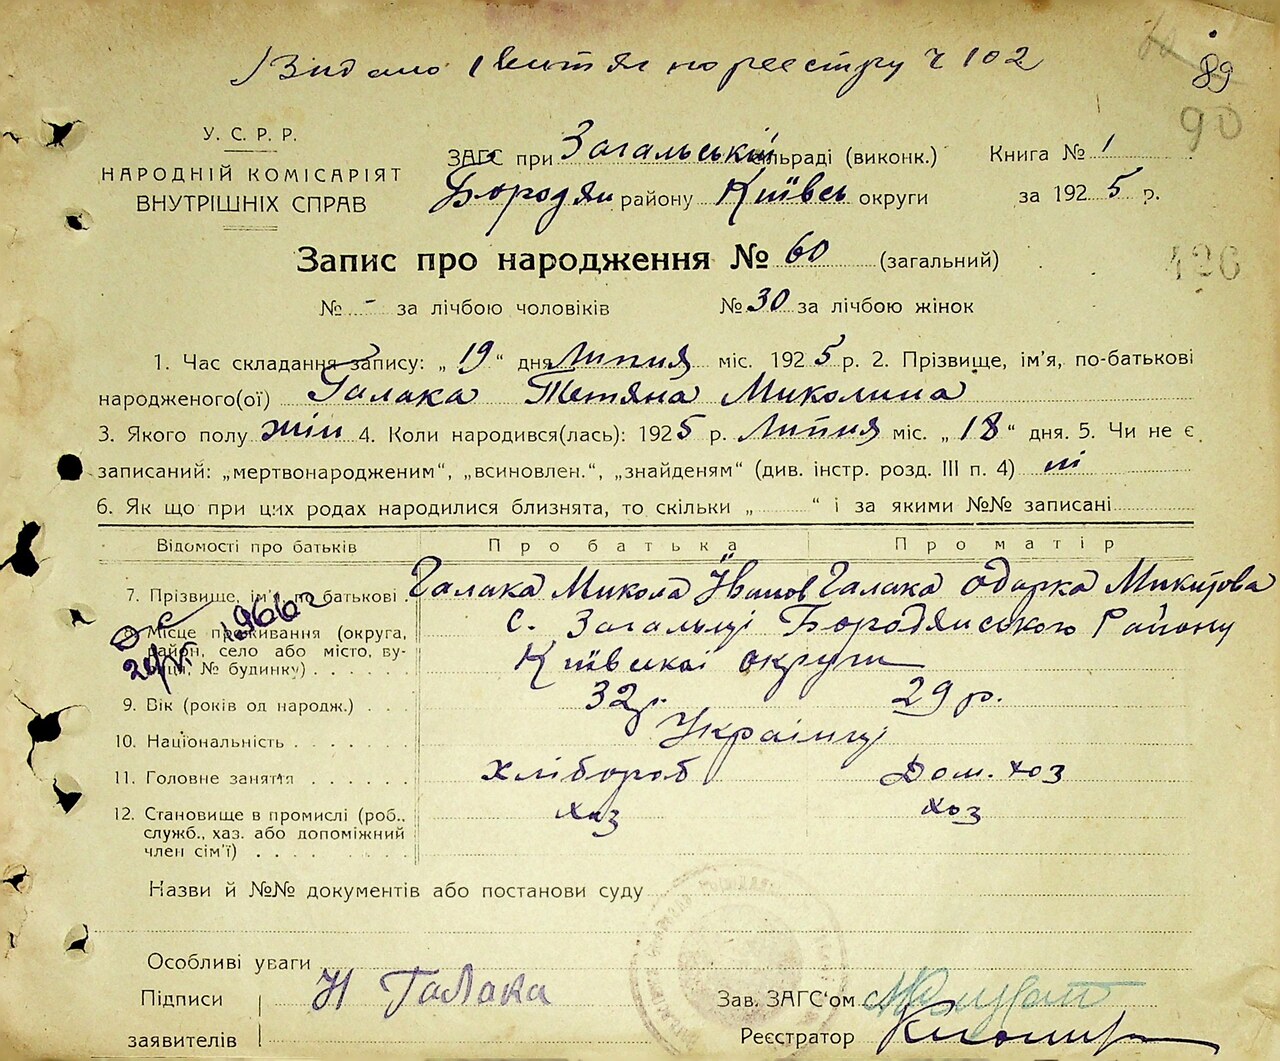 Видано квиток по реєстру Ч 102
89
90
У. С. Р. Р.
НАРОДНІЙ КОМІСАРІЯТ
ВНУТРІШНІХ СПРАВ
ЗАГС при Загальській сільраді (виконк.) Книга № 1
Бородян району Київсь округи за 1925 р.
Запис про народження № 60 (загальний)
126
№ - за лічбою чоловіків № 30 за лічбою жінок
1. Час складання запису: „ 19 “ дня Липня міс. 1925 р. 2. Прізвище, ім'я, по-батькові
народженого(ої) Галака Тетяна Миколина
3. Якого полу жін 4. Коли народився(лась): 1925 р. Липня міс. „ 18 “ дня. 5. Чи не є
записаний: „мертвонародженим“, „всиновлен.“, „знайденям“ (див. інстр. розд. III п. 4) ні
6. Як що при цих родах народилися близнята, то скільки „ “ і за якими №№ записані
Відомості про батьків Про батька Про матір
7. Прізвище, ім'я, по батькові Галака Микола Іванов Галака Одарка Микитова
1966 г
8. Місце проживання (округа, район, село або місто, вулиця, № будинку) с. Загальці Бородянського Району
Київської округи
9. Вік (років од народж.) 32 р. 29 р.
10. Національність Українці
11. Головне заняття хлібороб Дом. хоз
12. Становище в промислі (роб., хаз хоз
служб., хаз. або допоміжний
член сім'ї)
Назви й №№ документів або постанови суду
Особливі уваги
Підписи Н Галака Зав. ЗАГС'ом
заявителів Реєстратор